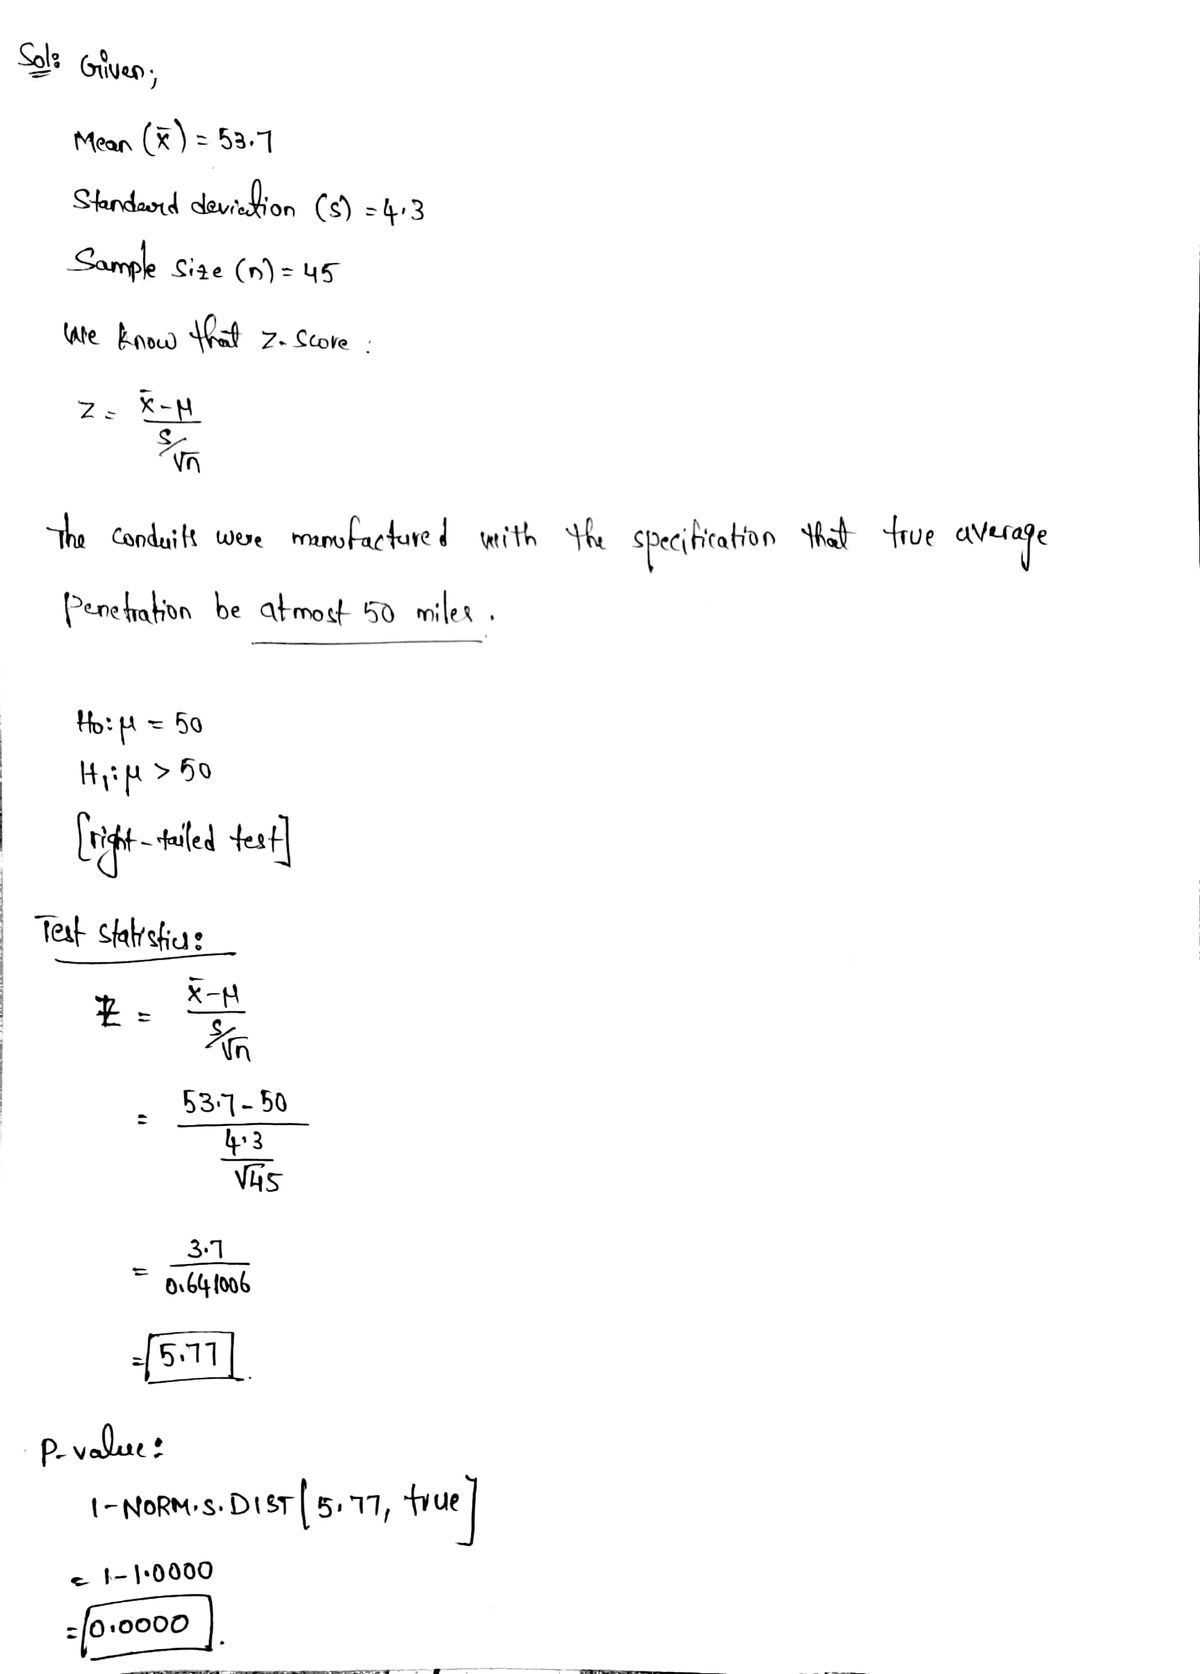 Sol: Given;
Mean (x̄) = 53.7
Standard deviation (s) = 4.3
Sample size (n) = 45
We know that z-score :
Z = x̄-μ
s/√n
The conduits were manufactured with the specification that true average
penetration be atmost 50 miles.
H0: μ = 50
H1: μ > 50
[right-tailed test]
Test statistics:
Z = x̄-μ
s/√n
= 53.7-50
4.3
√45
= 3.7
0.641006
= 5.77
P-value:
1-NORM.S.DIST[5.77, true]
= 1-1.0000
= 0.0000